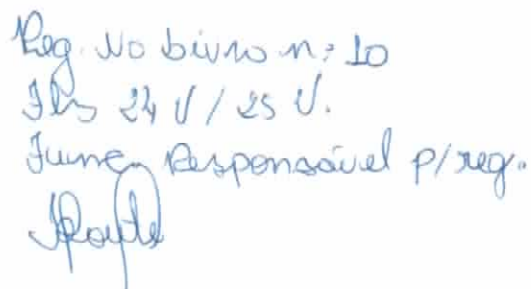 Reg. No Livro n: 10
Fls 24 V / 25 V.
Func. Responsável p/ reg.